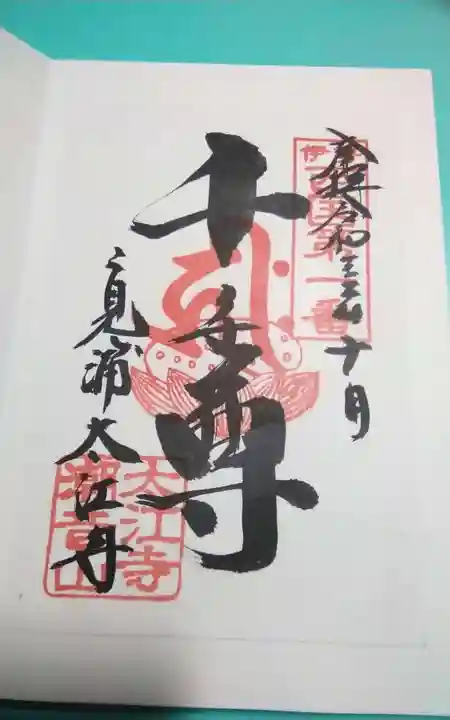 奉拝 令和三年十月
伊勢西国第一番
千手尊
二見浦 大江寺
大江寺
潮音山